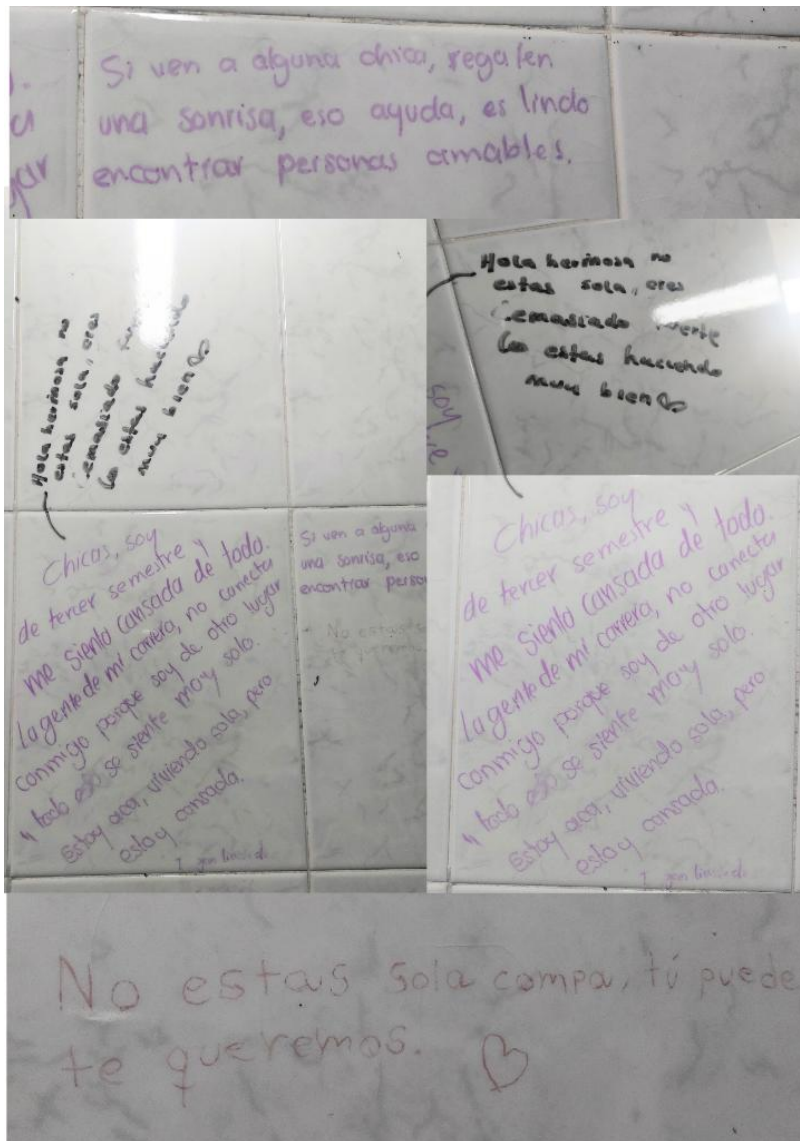 Si ven a alguna chica, regalen
una sonrisa, eso ayuda, es lindo
encontrar personas amables.
Hola hermosa no
estas sola, eres
demasiado
lo estas haciendo
muy bien
Hola hermosa no
estas sola, eres
demasiado fuerte
lo estas haciendo
muy bien
soy
Chicas, soy
de tercer semestre y
me siento cansada de todo.
La gente de mi carrera, no conecta
conmigo porque soy de otro lugar
y todo eso se siente muy solo.
Estoy aca, viviendo sola, pero
estoy cansada.
Si ven a alguna
una sonrisa, eso
encontrar perso
No estas s
te queremos
Chicas, soy
de tercer semestre y
me siento cansada de todo.
La gente de mi carrera, no conecta
conmigo porque soy de otro lugar
y todo eso se siente muy solo.
Estoy aca, viviendo sola, pero
estoy cansada.
No estas sola compa, tú puede
te queremos.